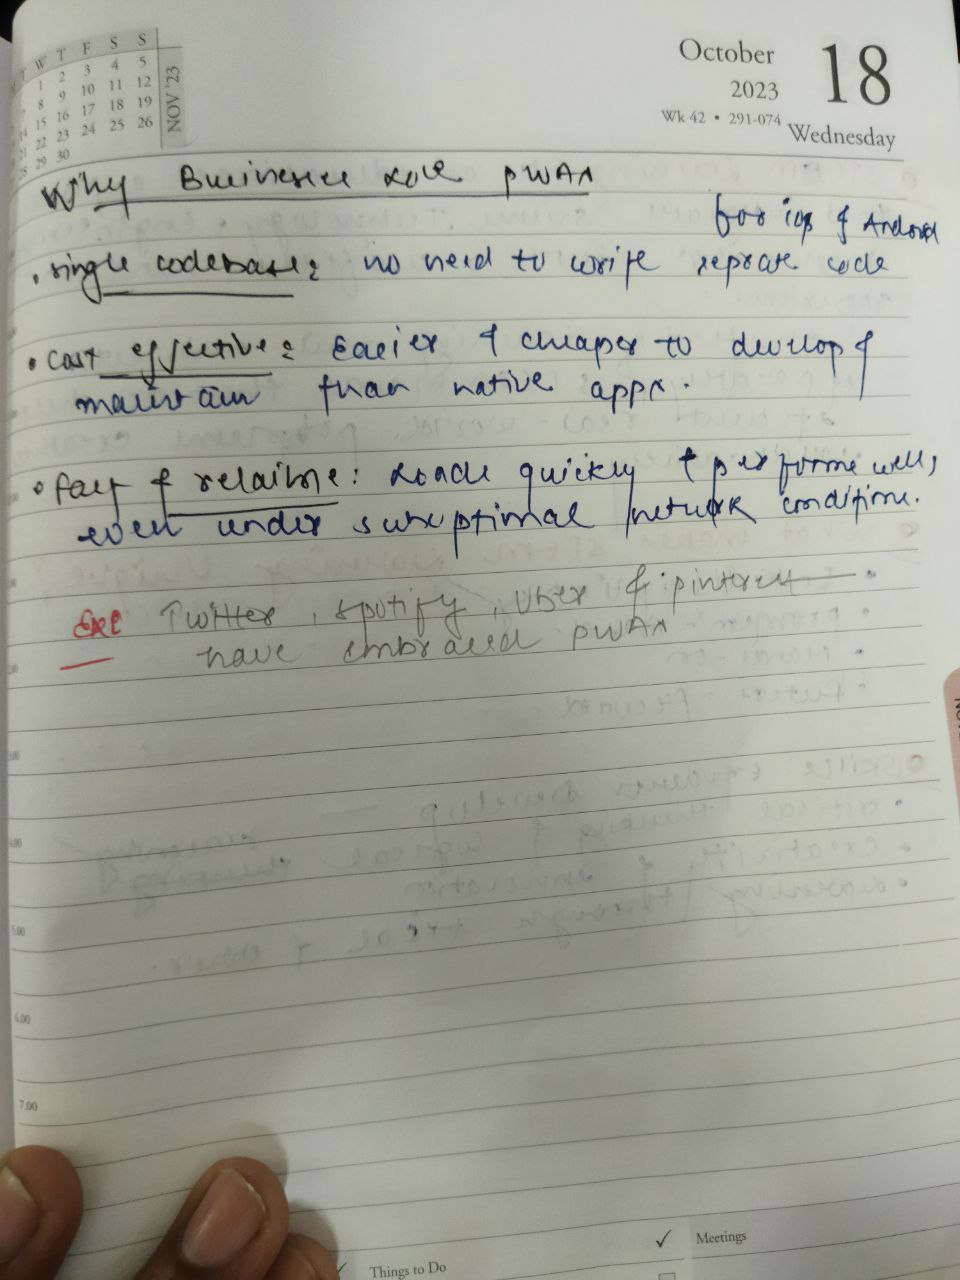 T W T F S S
1 2 3 4 5
8 9 10 11 12
14 15 16 17 18 19
21 22 23 24 25 26
28 29 30
NOV '23
October 18
2023
Wk 42 • 291-074
Wednesday
Why Businesses Love PWAs
for ios & Android
• single codebase: no need to write seprate code
• Cost effective: Easier & cheaper to develop &
maintain than native apps.
• Fast & relaible: Loads quickly & performs well,
even under suboptimal network conditions.
Exe Twitter, spotify, Uber & pinterest
have embraced PWAs
5.00
6.00
7.00
Things to Do
Meetings